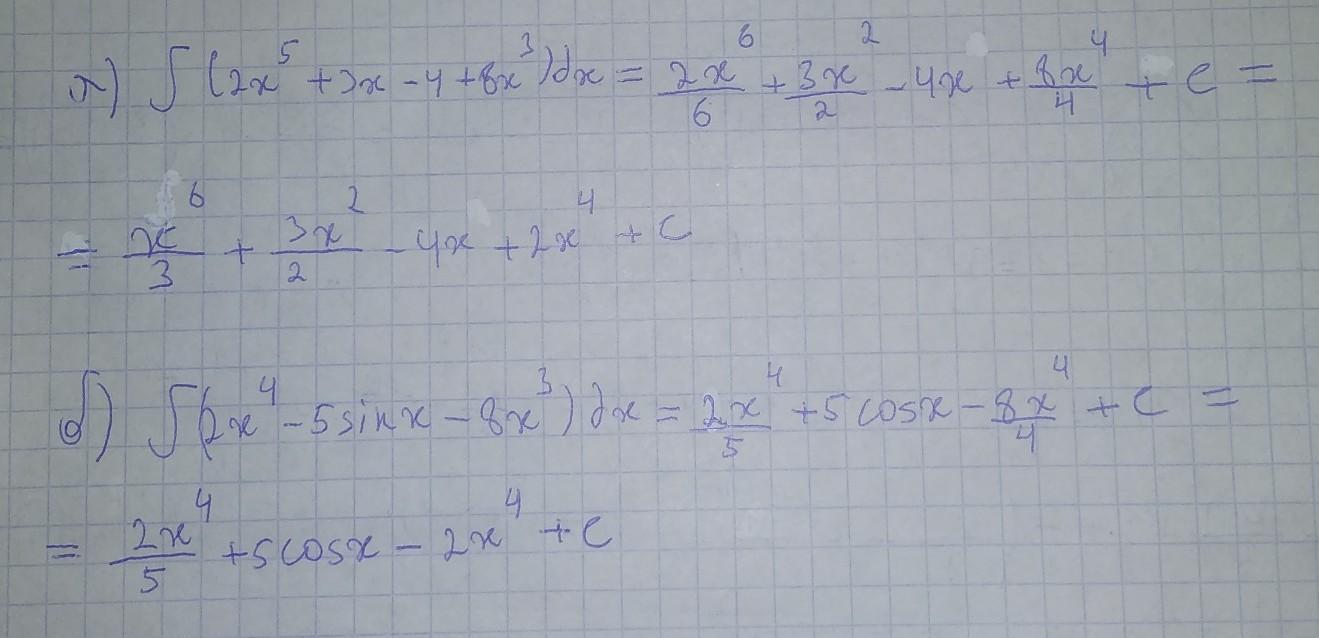 а) ∫(2x⁵ + 3x - 4 + 8x³)dx = 2x⁶/6 + 3x²/2 - 4x + 8x⁴/4 + c =
= x⁶/3 + 3x²/2 - 4x + 2x⁴ + c
б) ∫(2x⁴ - 5sinx - 8x³)dx = 2x⁴/5 + 5cosx - 8x⁴/4 + c =
= 2x⁴/5 + 5cosx - 2x⁴ + c